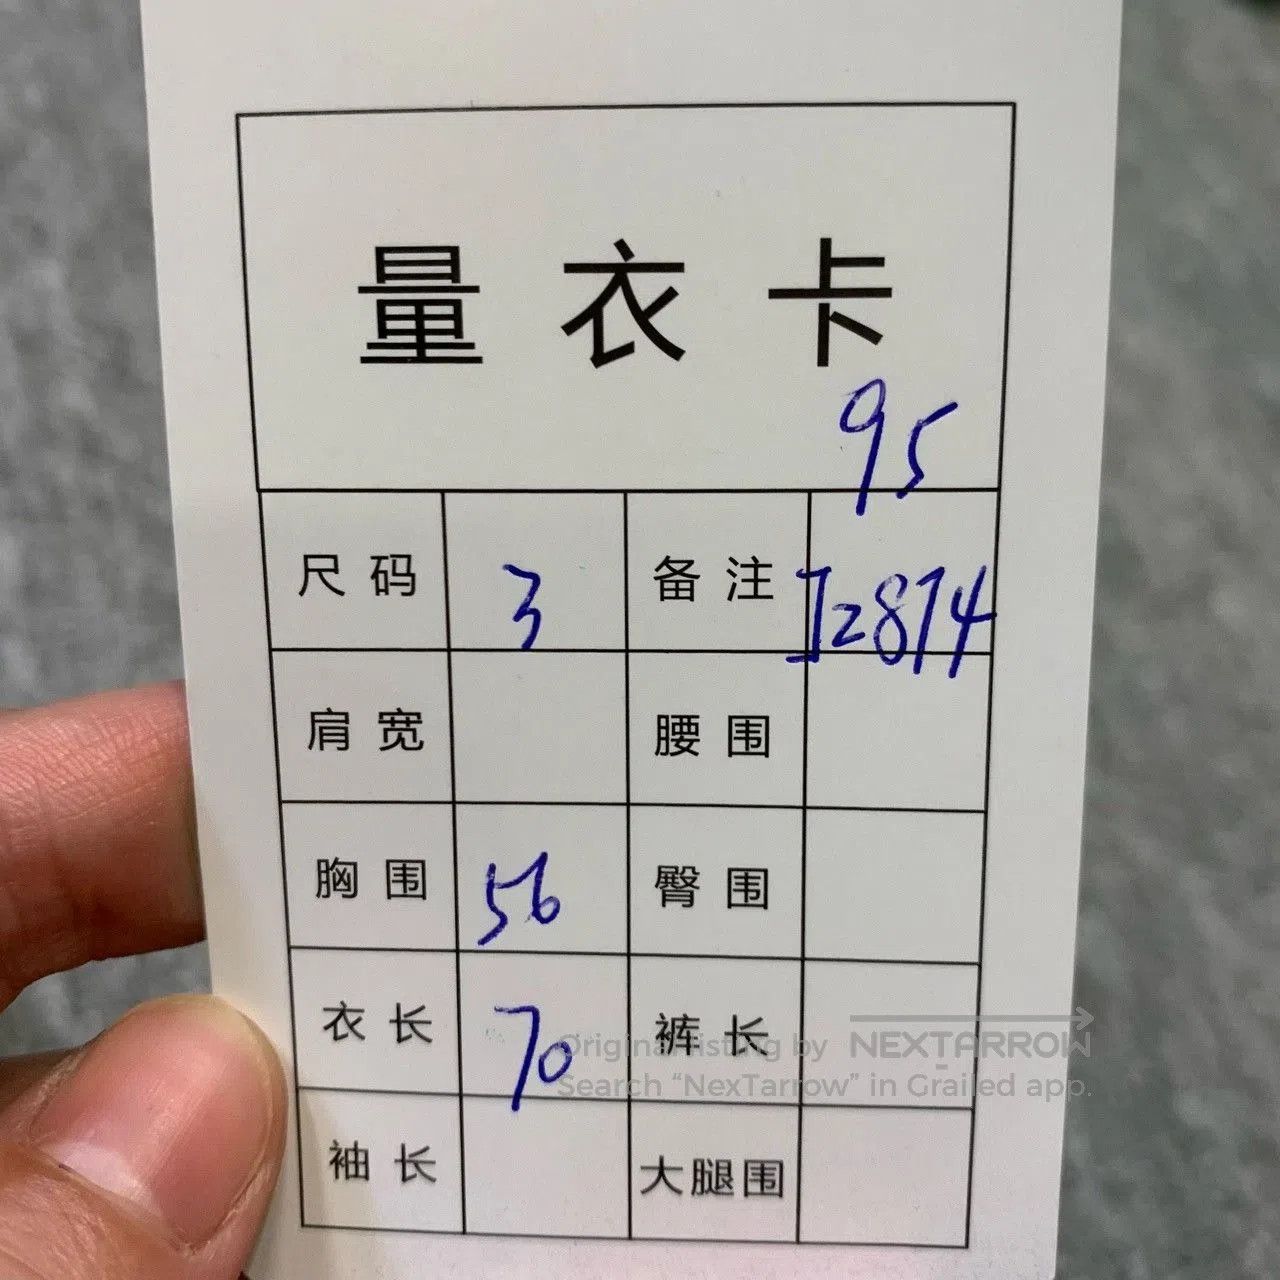 量衣卡
95
尺码 3 备注 J2874
肩宽 腰围
胸围 56 臀围
衣长 70 裤长
袖长 大腿围
Original listing by NEXTARROW
Search “NexTarrow” in Grailed app.